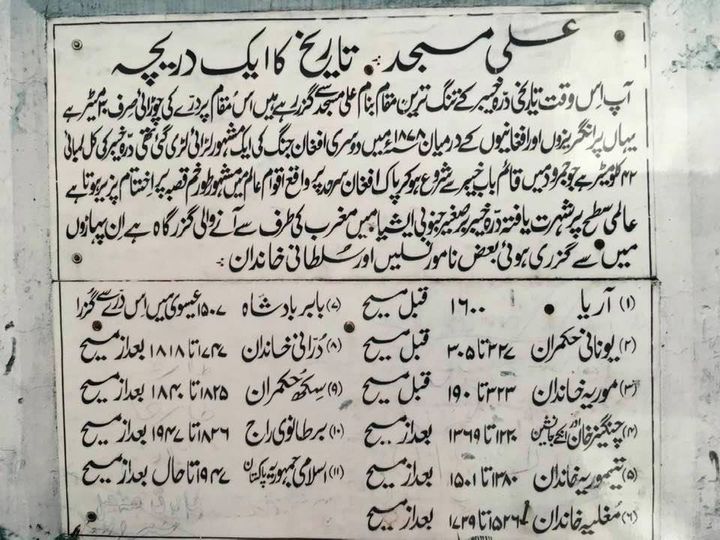 علی مسجد تاریخ کا ایک دریچہ
آپ اِس وقت تاریخی درّہ خیبر کے تنگ ترین مقام بنام علی مسجد سے گزر رہے ہیں اس مقام پر درّے کی چوڑائی صرف ۲۰ میٹر ہے
یہاں پر انگریزوں اور افغانیوں کے درمیان ۱۸۷۸ء میں دوسری افغان جنگ کی ایک مشہور لڑائی لڑی گئی تھی درّہ خیبر کی کل لمبائی
۴۲ کلومیٹر ہے جو جمرود میں قائم باب خیبر سے شروع ہو کر پاک افغان سرحد پر واقع اقوام عالم میں مشہور طورخم قصبہ پر اختتام پزیر ہوتا ہے
عالمی سطح پر شہرت یافتہ درّہ خیبر برصغیر جنوبی ایشیا میں مغرب کی طرف سے آنے والی گزرگاہ ہے اِن پہاڑوں
میں سے گزری ہوئی بعض نامور نسلیں اور سُلطانی خاندان :
(۱) آریا ۱۶۰۰ قبل مسیح (۷) بابر بادشاہ ۱۵۰۷ عیسوی میں اِس درّے سے گُزرا
(۲) یونانی حکمران ۳۲۷ تا ۳۰۵ قبل مسیح (۸) دُرانی خاندان ۱۷۴۷ تا ۱۸۱۸ بعد از مسیح
(۳) موریہ خاندان ۳۲۳ تا ۱۹۰ قبل مسیح (۹) سِکھ حُکمران ۱۸۲۵ تا ۱۸۴۰ بعد از مسیح
(۴) چنگیز خان اور انکے جانشین ۱۲۲۰ تا ۱۳۶۹ بعد از مسیح (۱۰) برطانوی راج ۱۸۲۶ تا ۱۹۴۷ بعد از مسیح
(۵) تیموریہ خاندان ۱۳۸۰ تا ۱۵۰۱ بعد از مسیح (۱۱) اسلامی جمہوریہ پاکستان ۱۹۴۷ تا حال بعد از مسیح
(۶) مغلیہ خاندان ۱۵۲۶ تا ۱۷۳۹ بعد از مسیح